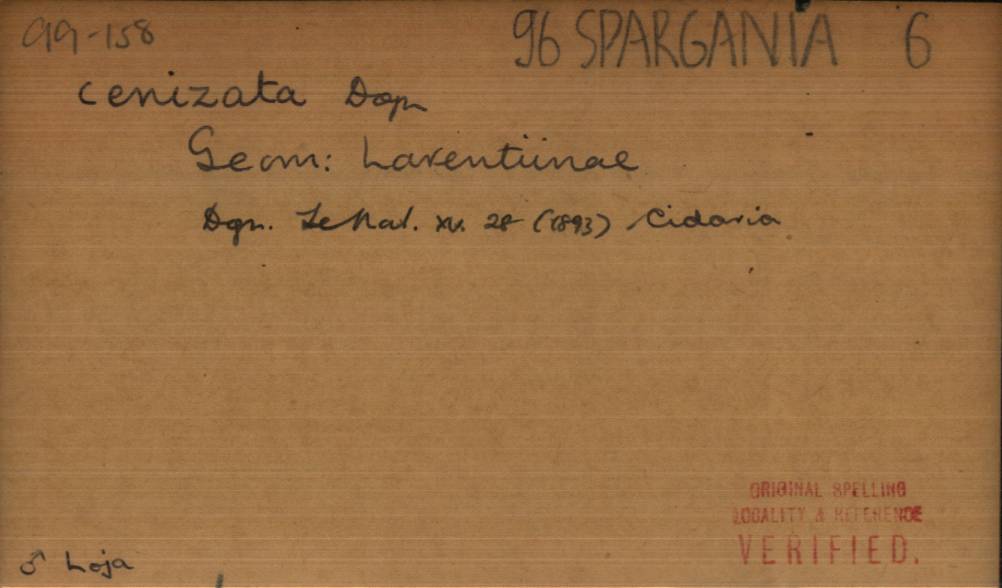 99-158 96 SPARGANIA 6
cenizata Dogn
Geom: Larentiinae
Dgn. Le Nat. xv. 28 (1893) Cidaria
ORIGINAL SPELLING
LOCALITY & REFERENCE
VERIFIED.
♂ Loja